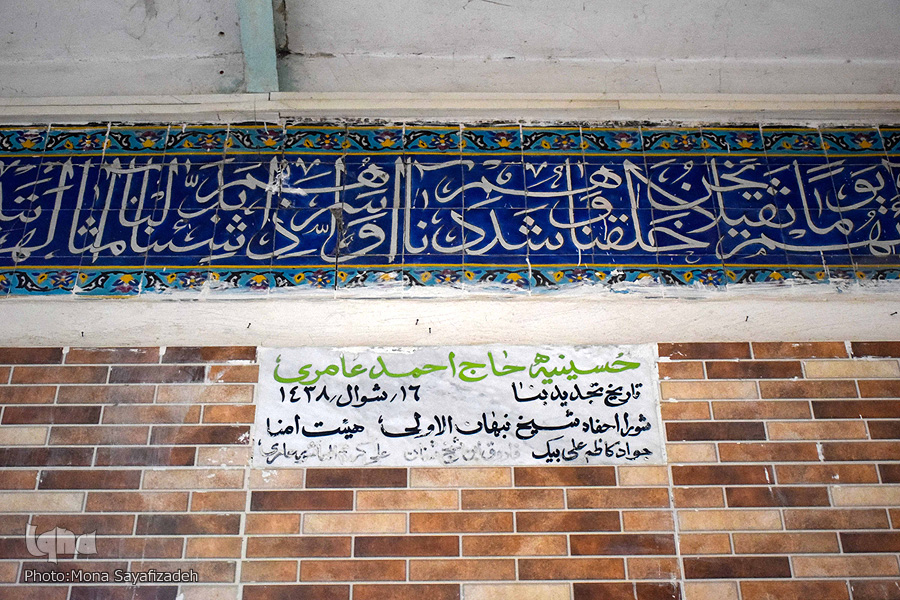 يوما ثقيلا نحن خلقناهم وشددنا أسرهم وإذا شئنا بدلنا أمثالهم
حسینیة حاج احمد عامری
تاریخ تجدید بنا ۱٦/ شوال/ ۱٤۳۸
شورا احفاد شیخ نبهان الاولی هیئت امنا
جواد کاظم علی بیک
iqna
Photo:Mona Sayafizadeh